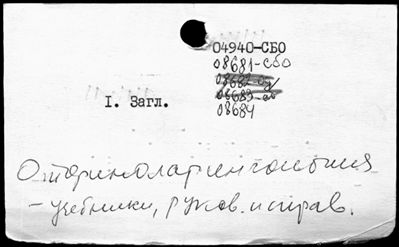 04940-СБО
08681-сбо
08682-
08683-аб
08684
I. Загл.
Оториноларингология
- учебники, руков. и справ.